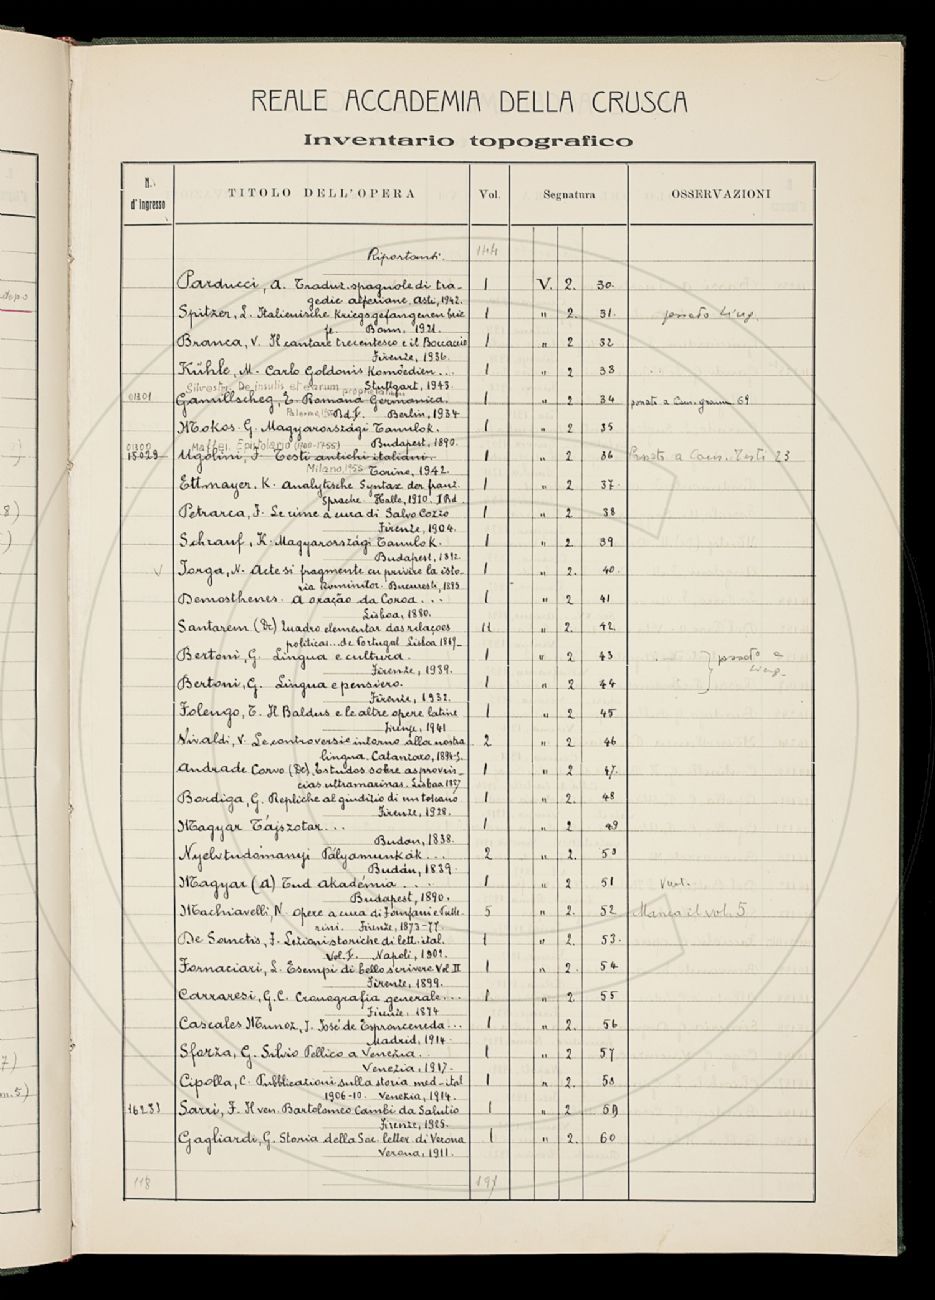 REALE ACCADEMIA DELLA CRUSCA
Inventario topografico
N. d'Ingresso TITOLO DELL'OPERA Vol. Segnatura OSSERVAZIONI
Riportansi.
Parducci, A. Traduz. spagnole di tra- 1 V. 2. 30.
gedie alferiane, Asti, 1942.
Spitzer, L. Italienische Kriegsgefangenen brie 1 " 2. 31. passato Ling.
fe. Bonn, 1921.
Branca, V. Il cantare trecentesco e il Boccaccio 1 " 2 32
Firenze, 1936.
Kühle, M. Carlo Goldonis Komöedien... 1 " 2 33
Stuttgart, 1943
Silvestri, De insulis et earum
01301 Gamillscheg, E. Romana Germanica. 1 " 2 34
Bd. I. Berlin, 1934
Mokos. G. Magyarországi Tanulok. 1 " 2 35
Budapest, 1890.
Maffei, Epistolario (1700-1755)
15029 Ugolini, F. Testi antichi italiani. 1 " 2 36 Testi 23
Milano, 1955 Torino, 1942.
Ettmayer. K. Analytische Syntax der franz. 1 " 2 37.
Sprache. Halle, 1910. I Bd.
Petrarca, F. Le rime a cura di Salvo Cozzo 1 " 2 38
Firenze, 1904.
Schrauf, K. Magyarországi Tanulok. 1 " 2 39
Budapest, 1892.
Iorga, N. Acte si fragmente cu privire la isto- 1 " 2. 40.
ria Rominilor. Bucuresti, 1895
Demosthenes. A oração da Coroa... 1 " 2 41
Lisboa, 1880.
Santarem (De) Quadro elementar das relaçoes 11 " 2. 42.
politicas... de Portugal Lisboa 1842-
Bertoni, G. Lingua e cultura. 1 " 2 43 passato a
Firenze, 1939. Ling.
Bertoni, G. Lingua e pensiero. 1 " 2 44
Firenze, 1932.
Folengo, T. Il Baldus e le altre opere latine 1 " 2 45
Firenze, 1941
Vivaldi, V. Le controversie intorno alla nostra 2 " 2 46
lingua. Catanzaro, 1894-5.
Andrade Corvo (De) Estudos sobre as provin- 1 " 2 47.
cias ultramarinas. Lisboa 1887
Bordiga, G. Repliche al giudizio di un toscano 1 " 2. 48
Firenze, 1928.
Magyar Tájszotar... 1 " 2 49
Budan, 1838.
Nyelvtudomanyi Pályamunkák... 2 " 2. 50
Budán, 1839.
Magyar (A) Tud akadémia... 1 " 2 51
Budapest, 1890.
Machiavelli, N. Opere a cura di Fanfani e Passe- 5 " 2. 52 Manca il vol. 5
rini. Firenze, 1873-77.
De Sanctis, F. Lezioni storiche di lett. ital. 1 " 2. 53.
Vol. I. Napoli, 1901.
Fornaciari, L. Esempi di bello scrivere Vol II 1 " 2. 54
Firenze, 1899.
Carraresi, G.C. Cronografia generale... 1 " 2. 55
Firenze, 1874
Cascales Munoz, J. José de Espronceneda... 1 " 2. 56
Madrid, 1914.
Sforza, G. Silvio Pellico a Venezia. 1 " 2 57
Venezia, 1917.
Cipolla, C. Pubblicazioni sulla storia med-ital 1 " 2. 58
1906-10. Venezia, 1914.
16231 Sarri, F. Il ven. Bartolomeo Cambi da Salutio 1 " 2 59
Firenze, 1925.
Gagliardi, G. Storia della Soc. letter. di Verona 1 " 2. 60
Verona, 1911.
118 191